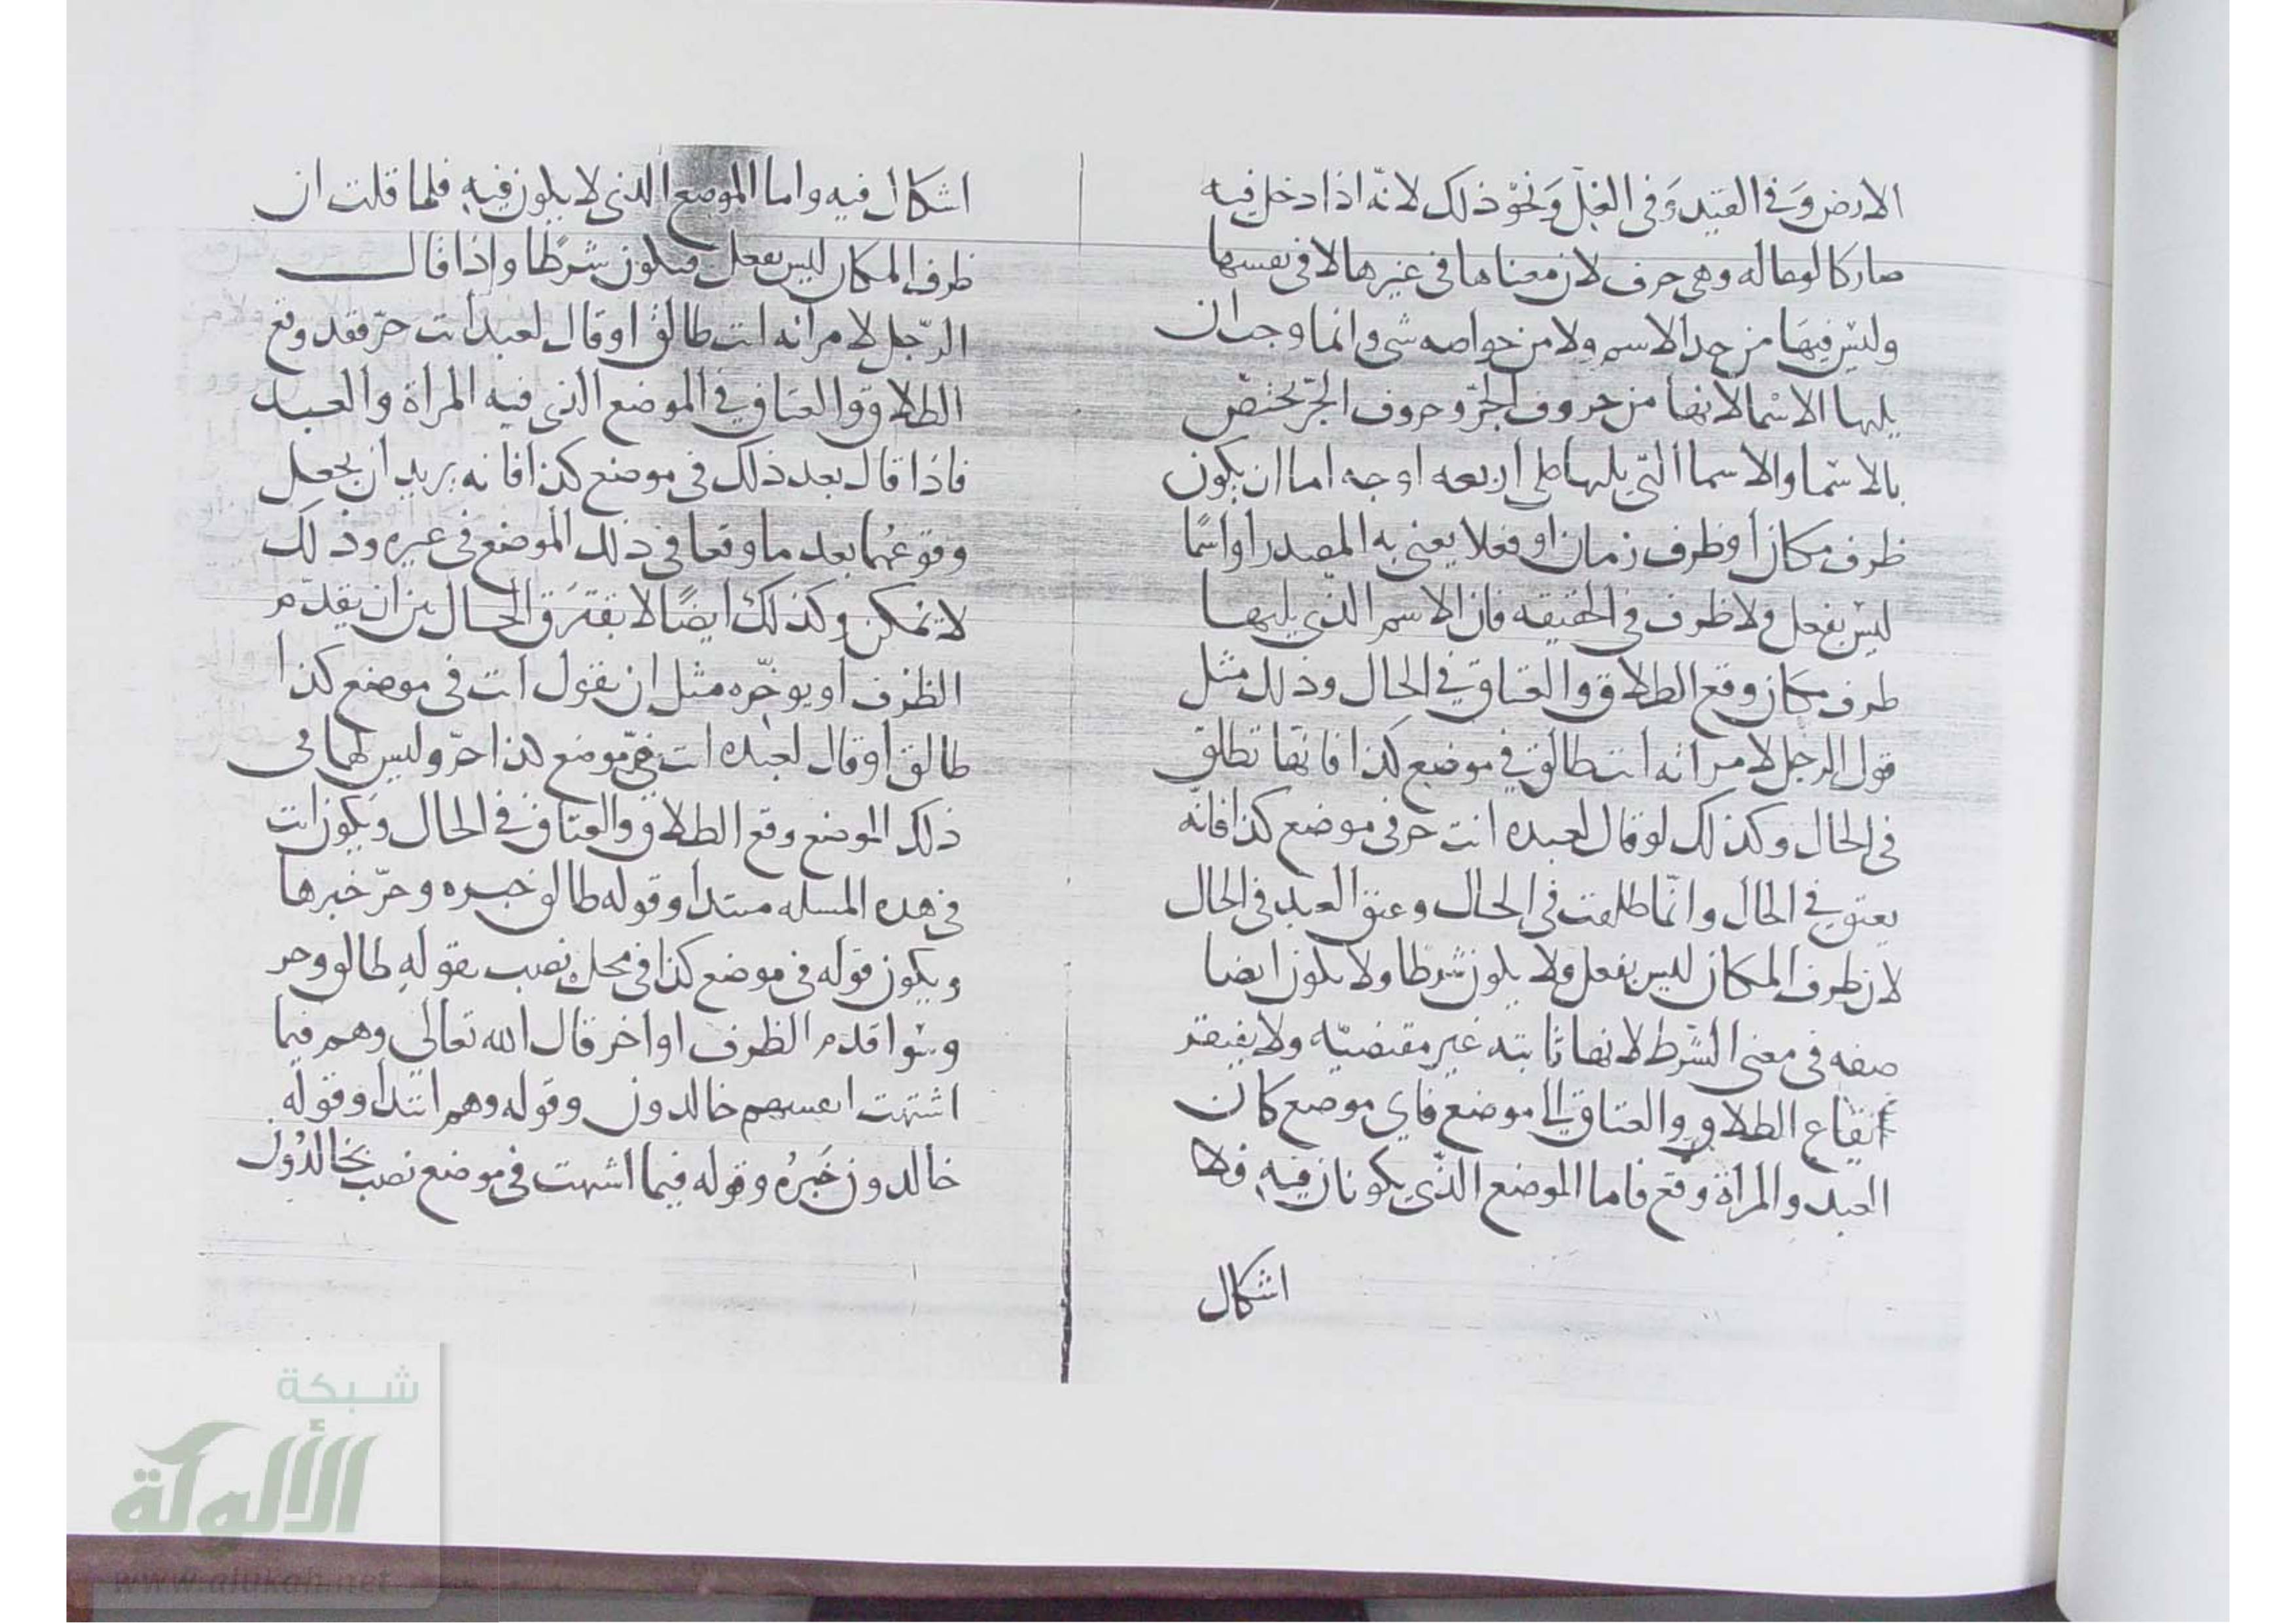 الارض وَفى القيد وَفى الغلّ وَنحو ذلك لانّه اذا دخل فيه
صار كالوعا له وهى حرف لان معناها فى غيرها لا فى نفسها
وليس فيهَا من حد الاسم ولا من خواصه شى وانما وجب ان
يليها الاسما لانها من حروف الجرّ وحروف الجرّ تختصّ
بالاسما والاسما التى يليها على اربعه اوجه اما ان يكون
ظرف مكان او ظرف زمان او فعلا يعنى به المصدر او اسمًا
ليس بفعل ولا ظرف فى الحقيقه فان الاسم الذى يليها
ظرف مكان وقع الطلاق والعتاق فى الحال وذلك مثل
قول الرجل لامراته انت طالق فى موضع كذا فانها تطلق
فى الحال وكذلك لو قال لعبده انت حر فى موضع كذا فانّه
يعتق فى الحال وانّما طلقت فى الحال وعتق العبد فى الحال
لان ظرف المكان ليس بفعل ولا يكون شرطا ولا يكون ايضا
صفه فى معنى الشرط لانها ثابته غير مقتضيّه ولا يفتقر
ايقاع الطلاق والعتاق الى موضع فاى موضع كان
العبد والمراة وقع فاما الموضع الذى يكونان فيه فلا
اشكال
اشكال فيه واما الموضع الذى لا يكون فيه فلما قلت ان
ظرف المكان ليس بفعل فيكون شرطًا واذا قال
الرّجل لامراته انت طالق او قال لعبد انت حرّ فقد وقع
الطلاق والعتاق فى الموضع الذى فيه المراة والعبد
فاذا قال بعد ذلك فى موضع كذا فانه يريد ان يجعل
وقوعهما بعد ما وقعا فى ذلك الموضع فى غيره وذلك
لا يمكن وكذلك ايضًا لا يفترق الحال بين ان يقدّم
الظرف او يوخّره مثل ان يقول انت فى موضع كذا
طالق او قال لعبده انت فى موضع كذا حرّ وليس لهما فى
ذلك الموضع وقع الطلاق والعتاق فى الحال وَيكون انت
فى هده المسله مبتدا وقوله طالق خبره وحرّ خبرها
ويكون قوله فى موضع كذا فى محل نصب بقوله طالق وحر
وسوا قدم الظرف او اخر قال الله تعالى وهم فيما
اشتهت انفسهم خالدون وقوله وهم ابتدا وقوله
خالدون خَبرُه وقوله فيما اشتهت فى موضع نصب بخالدُون
شبكة
الألوكة
www.alukah.net